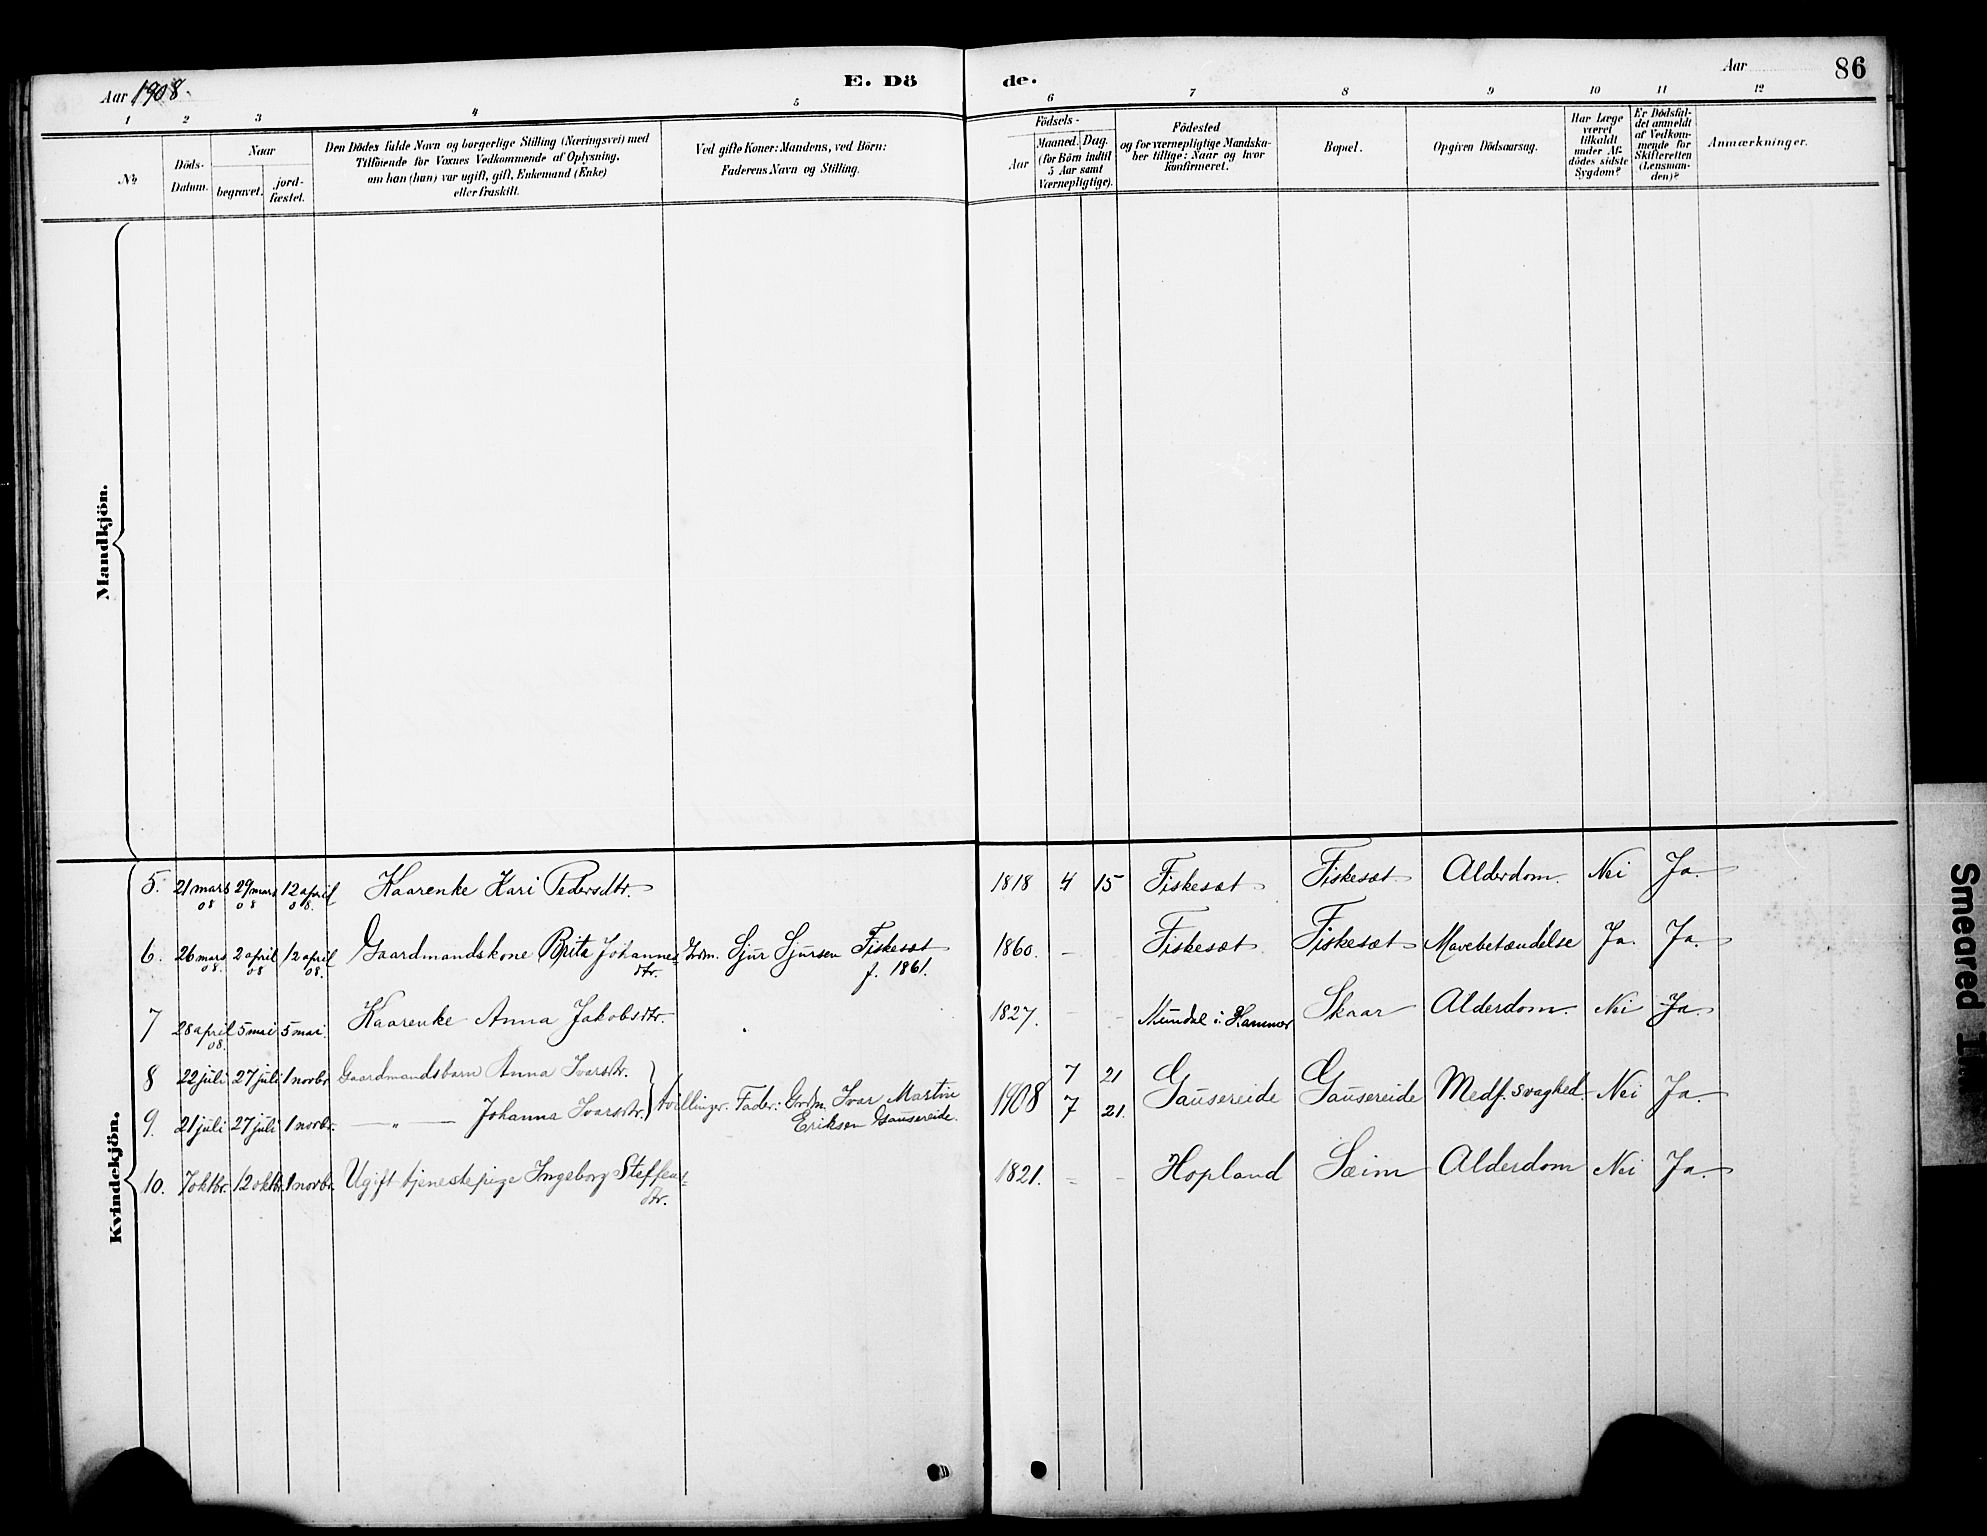 Aar 1908.
E. Dö de.
Aar
86
1 2 3 4 5 6 7 8 9 10 11 12
No
Döds-
Datum.
Naar
begravet.
jord-
fæstet.
Den Dödes fulde Navn og borgerlige Stilling (Næringsvei) med
Tilföiende for Voxnes Vedkommende af Oplysning,
om han (hun) var ugift, gift, Enkemand (Enke)
eller fraskilt.
Ved gifte Koner: Mandens, ved Börn:
Faderens Navn og Stilling.
Födsels-
Aar
Maaned. Dag.
(for Börn indtil
5 Aar samt
Værnepligtige).
Födested
og for værnepligtige Mandska-
ber tillige: Naar og hvor
konfirmeret.
Bopæl.
Opgiven Dödsaarsag.
Har Læge
været
tilkaldt
under Af-
dödes sidste
Sygdom?
Er Dödsfal-
det anmeldt
af Vedkom-
mende for
Skifteretten
(Lensman-
den)?
Anmærkninger.
Mandkjön.
Kvindekjön.
5. 21 mars 29 mars 12 april Kaarenke Kari Pedersdtr. 1818 4 15 Fiskesæt Fiskesæt Alderdom. Nei Ja.
08 08 08.
6. 26 mars 2 april 12 april Gaardmandskone Brita Johannes= Grdm. Sjur Sjursen Fiskesæt 1860. – Fiskesæt Fiskesæt Mavebetændelse Ja. Ja.
08. 08 08. dtr. f. 1861.
7 28 april 5 mai 5 mai. Kaarenke Anna Jakobsdtr. 1827. – – Mundal i Hammer Skaar Alderdom. Nei Ja.
08.
8 22 juli 27 juli 1 novbr Gaardmandsbarn Anna Ivarsdtr. 7 21
9. 21 juli 27 juli 1 novbr. — " — Johanna Ivarsdtr. } tvillinger. Fader: Grdm. Ivar Martin 1908 7 21. Gausereide Gausereide Medf. svaghed Nei Ja.
Eriksen Gausereide.
10. 7 oktbr. 12 oktbr. 1 novbr. Ugift tjenestepige Ingeborg Steffens= 1821. – – Hopland Sæim Alderdom Nei Ja.
dtr.
Smeared